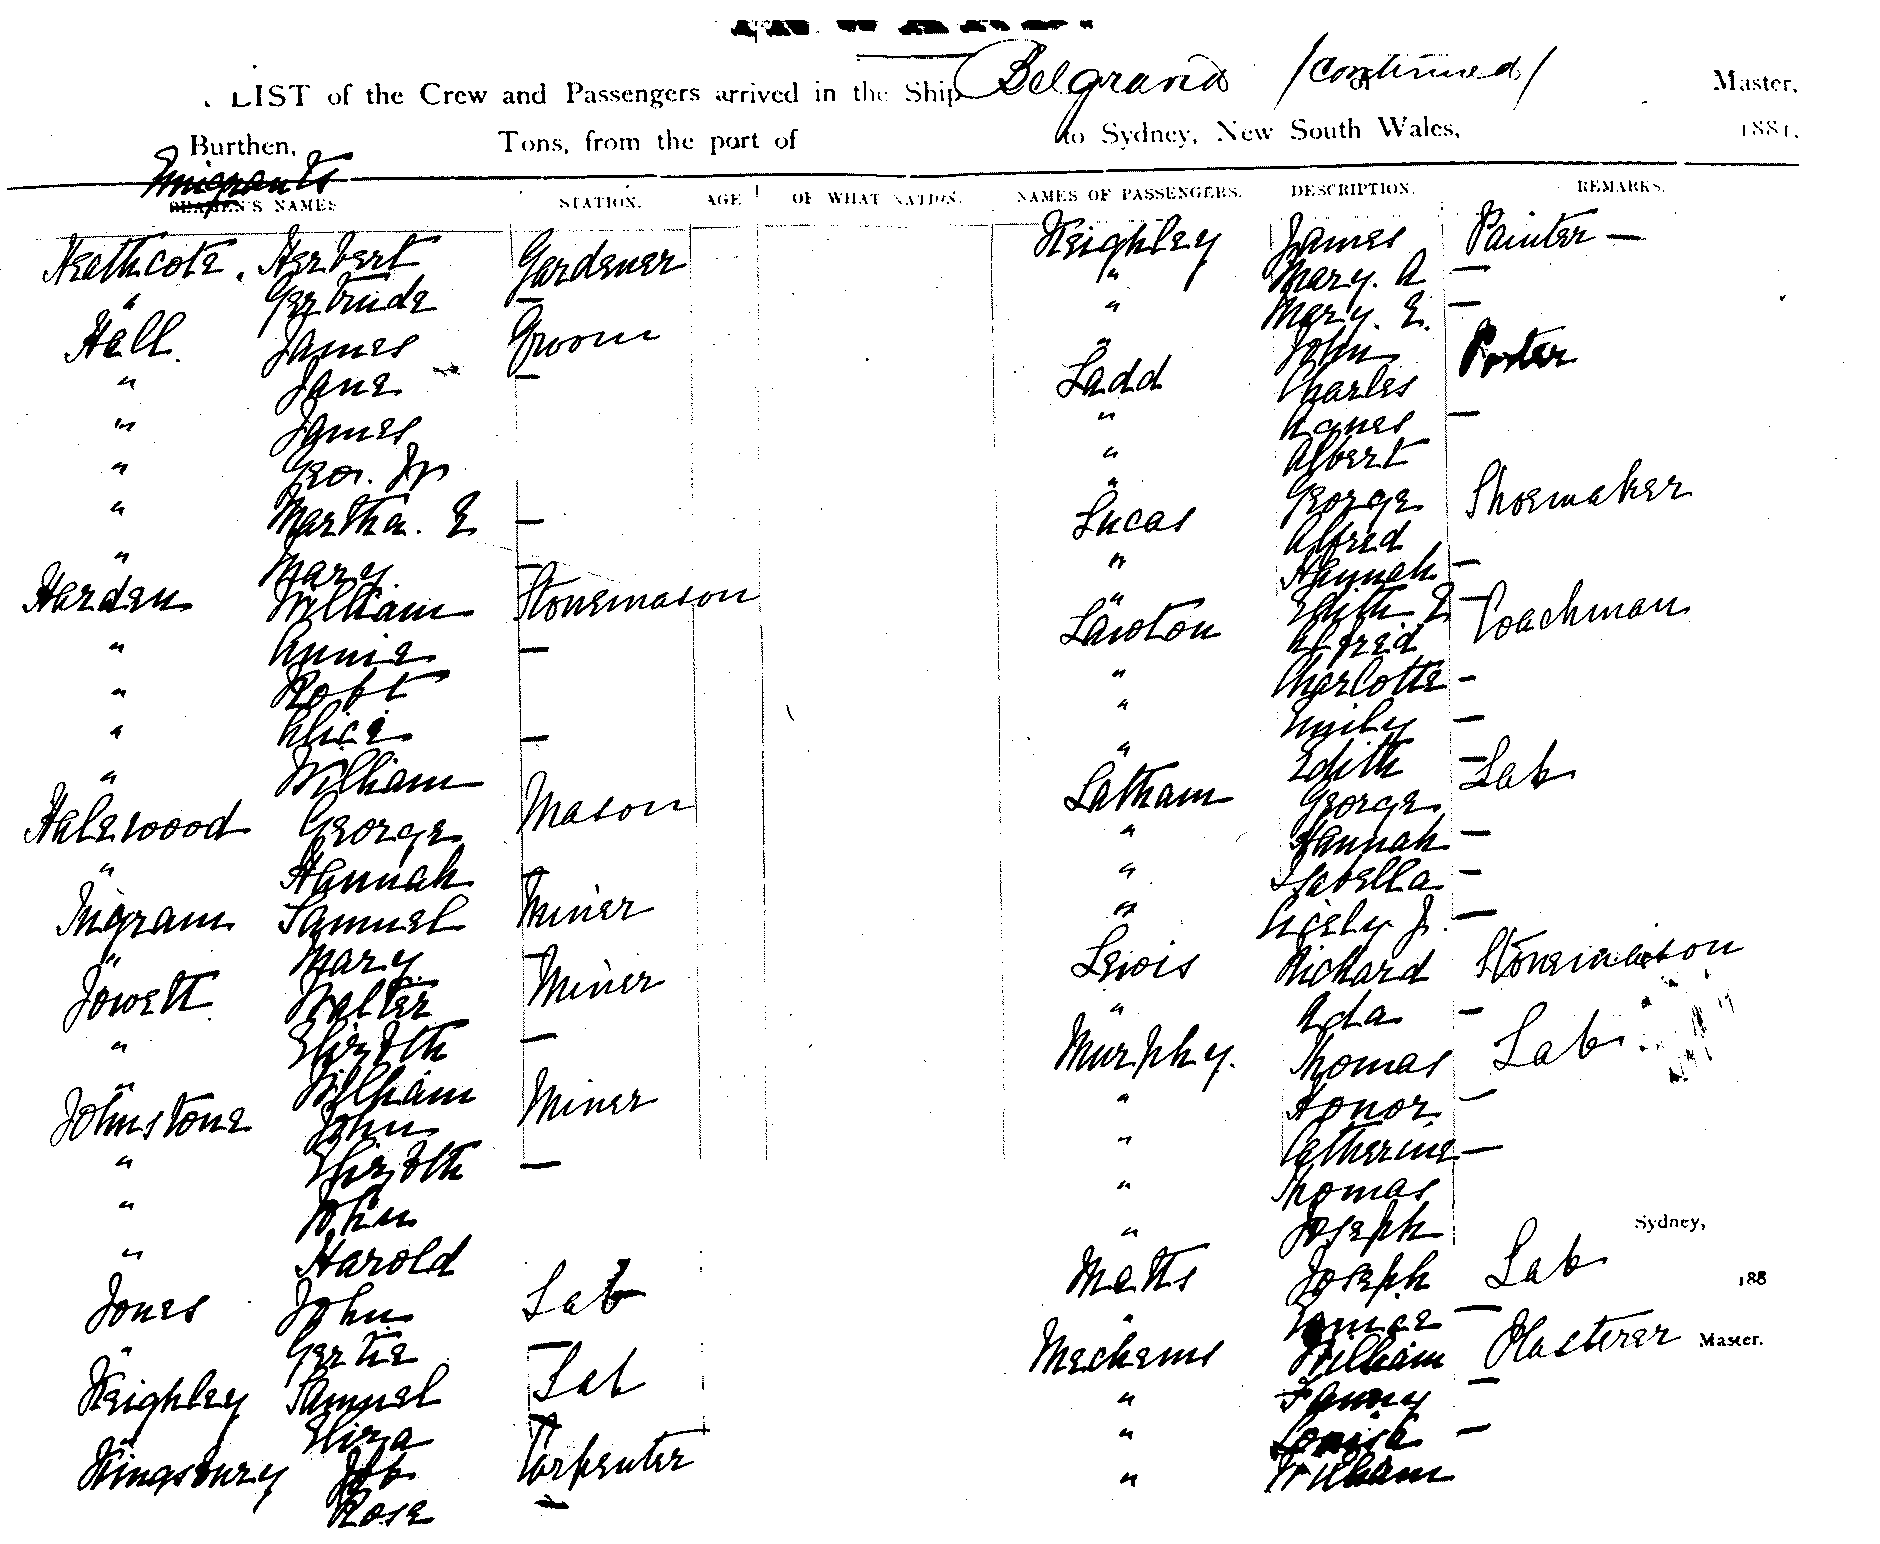 INWARD.
LIST of the Crew and Passengers arrived in the Ship Belgravia /continued/ of Master,
Burthen, Tons, from the port of to Sydney, New South Wales, 1881.
Emigrants
SEAMEN'S NAMES STATION. AGE OF WHAT NATION.
Heathcote. Herbert Gardener
" Gertrude —
Hall. James Groom
" Jane —
" James
" Geo. Jn
" Martha. E —
" Mary —
Harden William Stonemason
" Annie —
" Robt
" Alice —
" William
Halewood George Mason
" Hannah —
Ingram Samuel Miner
" Mary —
Jowett Walter Miner
" Elizbth —
" William
Johnstone John Miner
" Elizbth —
" John
" Harold
Jones John Lab
" Gertie —
Keighley Samuel Lab
" Eliza —
Kingsbury Job Carpenter
Rose —
NAMES OF PASSENGERS. DESCRIPTION. REMARKS.
Keighley James Painter —
" Mary. A —
" Mary. E. —
" John
Ladd Charles Porter
" Agnes —
" Albert
" George
Lucas Alfred Shoemaker
" Hannah —
" Edith E —
Lawton Alfred Coachman
" Charlotte —
" Emily —
" Edith —
Latham George Lab
" Hannah —
" Isabella —
" Cicely J. —
Lewis Richard Stonemason
" Ada —
Murphy. Thomas Lab
" Honor —
" Catherine —
" Thomas
" Joseph
Matts Joseph Lab
" Eunice —
Mechems William Plasterer
" Fanny —
" Louisa —
" William
Sydney,
188
Master.